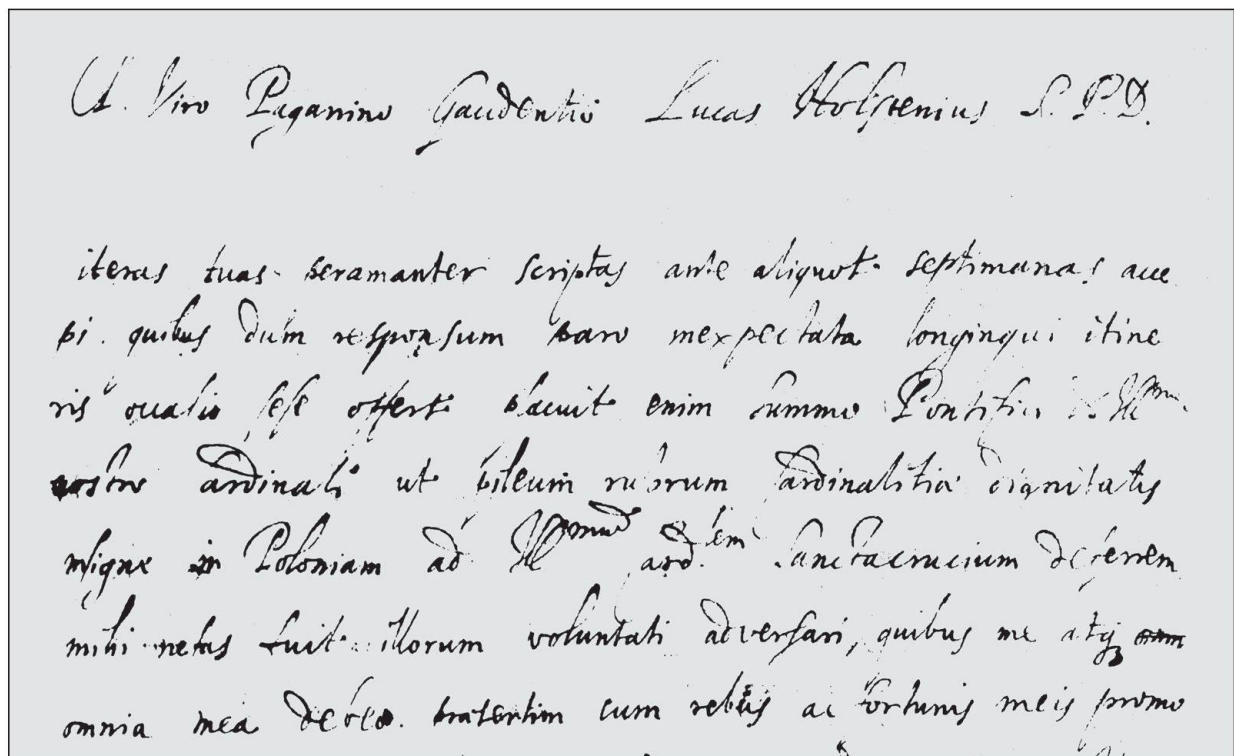 Cl. Viro Paganino Gaudentio Lucas Holstenius S. P. D.
iteras tuas peramanter scriptas ante aliquot septimanas acce
pi. quibus dum responsum paro inexpectata longinqui itine
ris occasio sese offert placuit enim summo Pontifici &
nostro Cardinali ut pileum rubrum Cardinalitiae dignitatis
insigne in Poloniam ad Ill.mum Card.lem Sanctacrucium deferrem
mihi nefas fuit illorum voluntati adversari, quibus me atq
omnia mea debeo. praesertim cum rebus ac fortunis meis promo